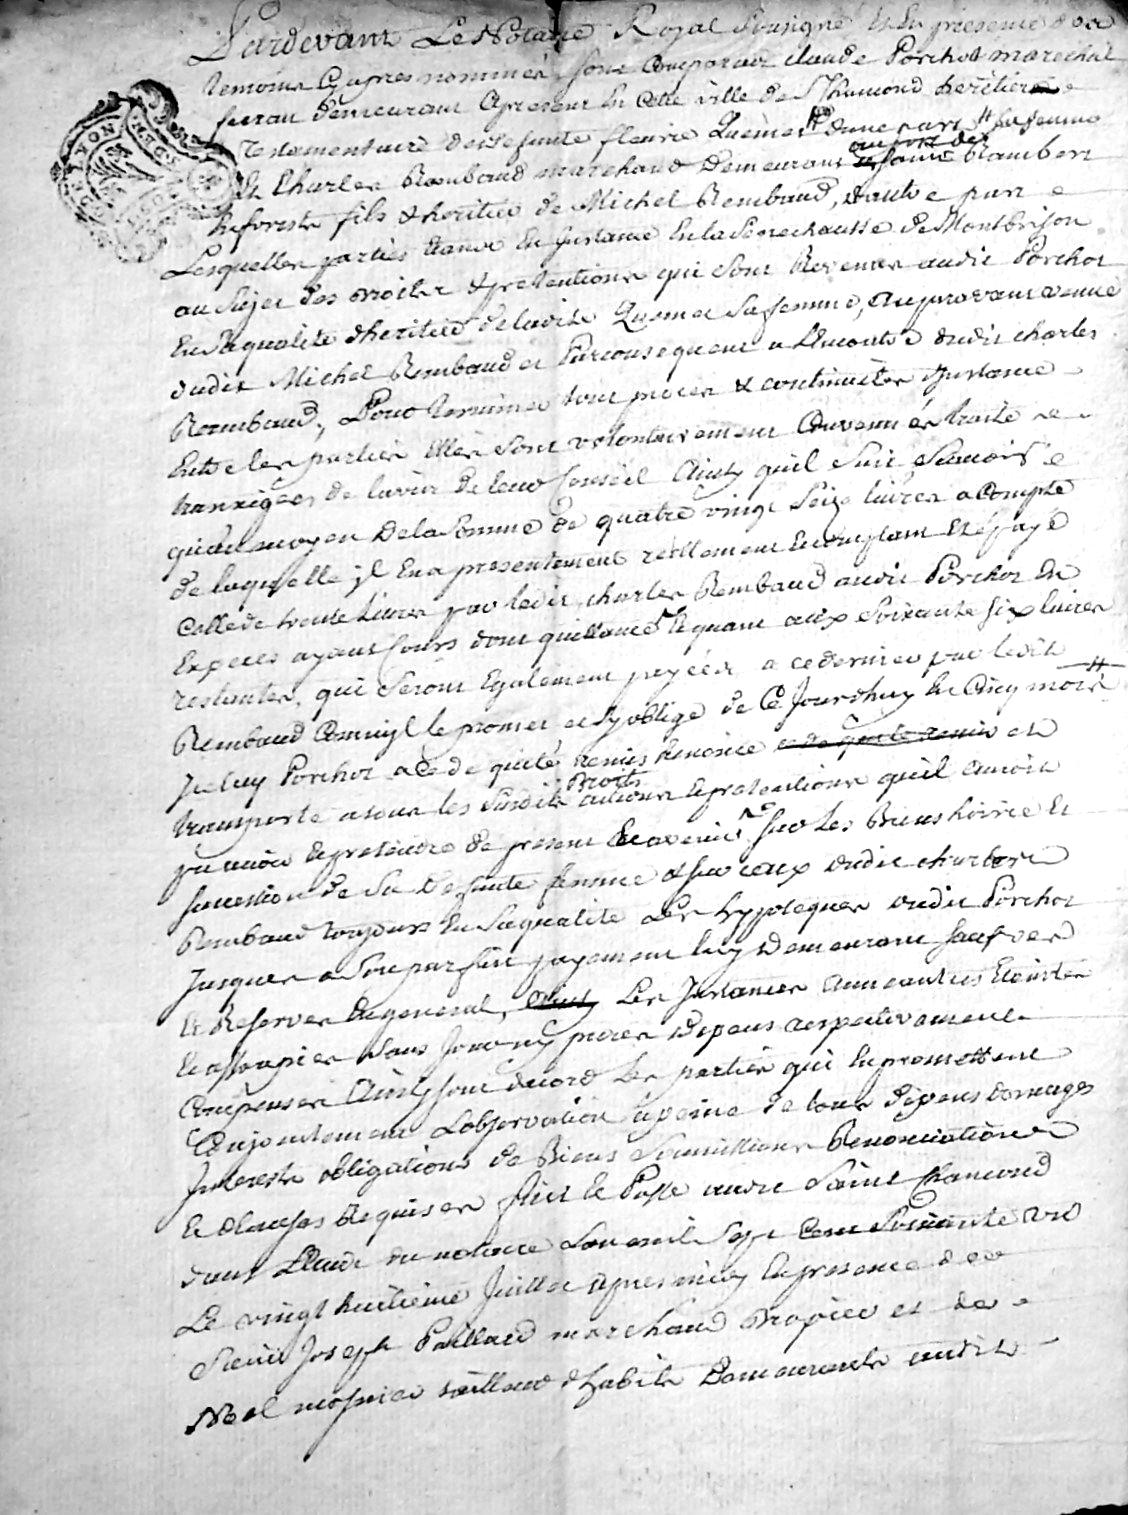 Pardevant Le Notaire Royal Soussigné Et En presence des
temoins Cy apres nommés, sont Comparus claude Porchot marechal
ferran demeurant apresent En Cette ville de St Chamond heritier
testamentaire de defunte fleurie Quemet sa femme d'une part
Et Charles Rambaud marchand Demeurant Rambert
En forests fils & heritier de Michel Rembaud, d'autre part
Lesquelles parties Etant En Instance En la Senechaussée de Montbrison
au Sujet des droits & pretentions qui sont Revenus audit Porchot
En Sa qualité d'heritier de ladite Quemet Sa femme, auparavant veuve
dudit Michel Rembaud et Par consequent a L'Encontre dudit charles
Rambaud, Pour terminer tout proces & contreditte Instance
Entre les parties Elles sont volontairement Convenües traité
transigées de l'avis de leur Conseil Ainsy quil Suit, Scavoir
qu'au moyen De la Somme de quatre vingt Seize livres a Compte
de laquelle il En a presentement reellement Encomptant Et payé
Celle de trente Livres par ledit charles Rembaud audit Porchot En
Especes ayant Cours dont quittance, Et quant aux Soixante six livres
restantes, qui Seront Egalement payées a ce dernier par ledit
Rembaud Comme il le promet et s'y oblige de Ce Jourdhuy En Cinq mois
Icelluy Porchot a Cedé quitté remis renoncé et
transporté a tous les Susdits droits actions Et pretentions quil auroit
pu avoir Et pretendre de present Et avenir sur les Biens hoirie Et
succession de Sa Defunte femme & sur ceux dudit charles
Rembaud toujours En Sa qualité Les hypoteques dudit Porchot
Jusques a Son parfait payement luy Demeurant sauf
Et Reserver En general, Les Instances aneanties Eteintes
Et assoupies Sans Jouny proces Depens respectivement
Compensés Ainsy sont d'acord Les parties qui En promettent
Conjointement L'observation a peine de tous depens domages
Interests obligations de Biens Soumissions Renonciations
Et Clauses Requises fait Et Passé audit Saint Chamond
dans L'Etude du notaire L'an mil Sept Cent Soixante
Le vingt huitieme Juillet apres midy En presence de
Sieur Joseph Paillard marchand Drapier et de
Noel tailleur d'habits Demeurants audit